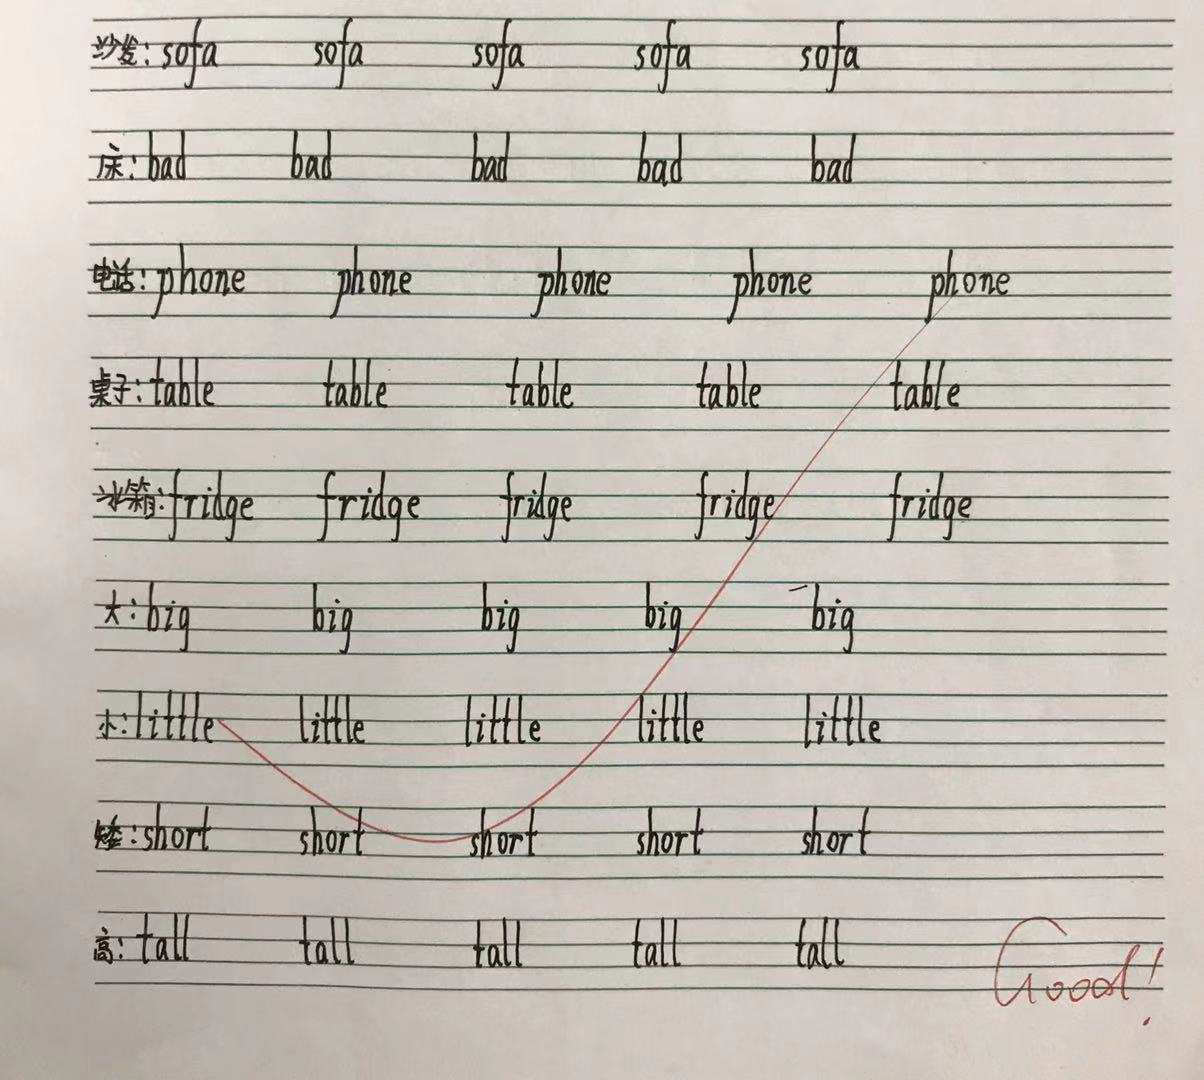 沙发: sofa sofa sofa sofa sofa
床: bad bad bad bad bad
电话: phone phone phone phone phone
桌子: table table table table table
冰箱: fridge fridge fridge fridge fridge
大: big big big big big
小: little little little little little
矮: short short short short short
高: tall tall tall tall tall
Good!